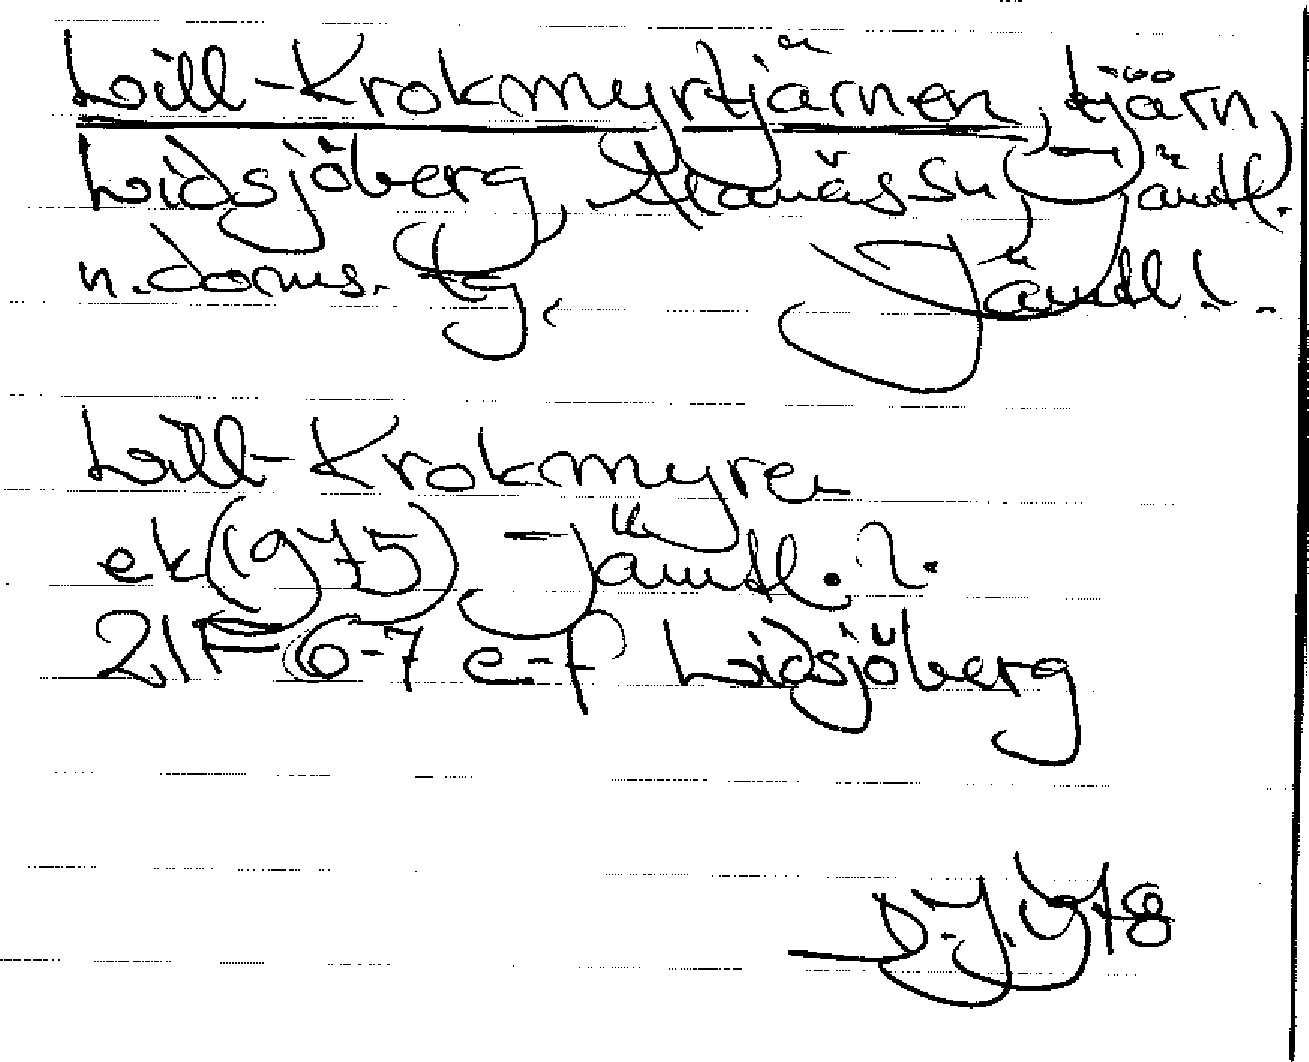 Lill-Krokmyrtjärnen, tjärn,
Lidsjöberg, Alanäs sn, Jämtl.
n. doms. tg, Jämtl. l.
Lill-Krokmyren
ek (1975) – Jämtl. l.
21F 6-7 e-f Lidsjöberg
1978